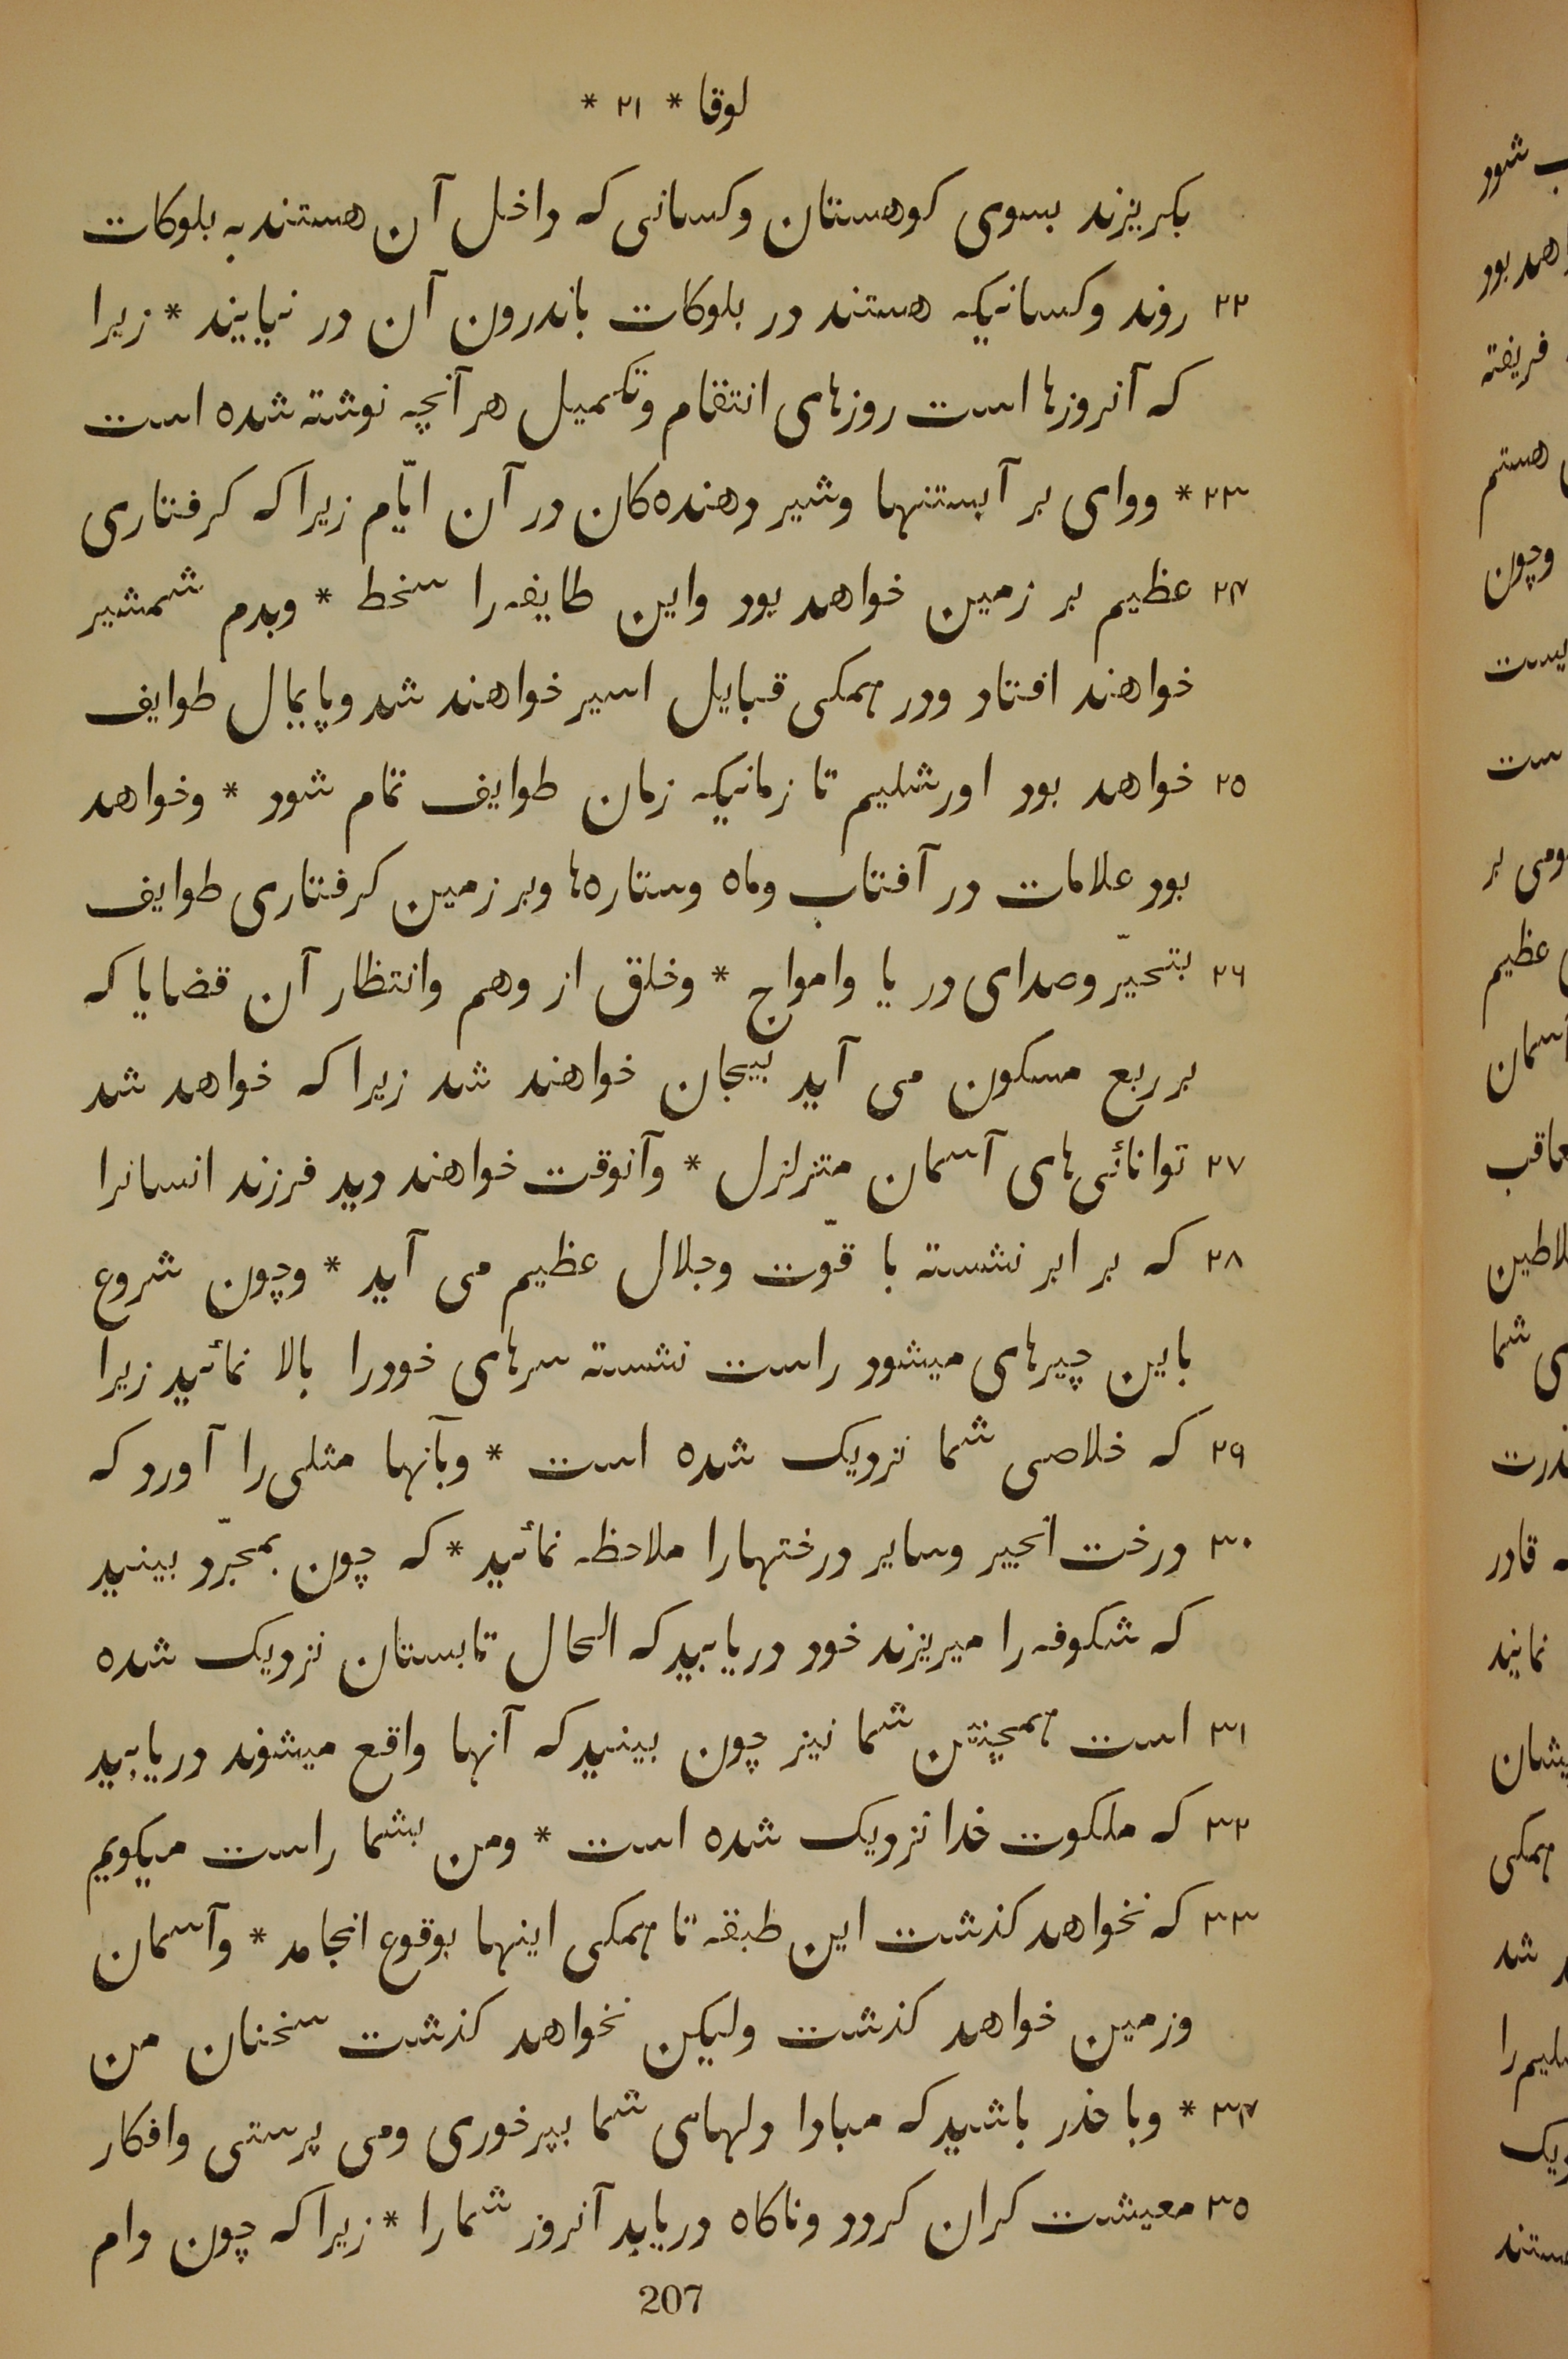 لوقا * ۲۱ *
بکریزند بسوی کوهستان وکسانی که داخل آن هستند به بلوکات
۲۲ روند وکسانیکه هستند در بلوکات باندرون آن در نیایند * زیرا
که آنروزها است روزهای انتقام وتکمیل هر آنچه نوشته شده است
۲۳ * ووای بر آبستنها وشیر دهنده‌کان در آن ایّام زیرا که کرفتاری
۲۴ عظیم بر زمین خواهد بود واین طایفه را سخط * وبدم شمشیر
خواهند افتاد ودر همکی قبایل اسیر خواهند شد وپایمال طوایف
۲۵ خواهد بود اورشلیم تا زمانیکه زمان طوایف تمام شود * وخواهد
بود علامات در آفتاب وماه وستاره‌ها وبر زمین کرفتاری طوایف
۲۶ بتحیّر وصدای دریا وامواج * وخلق از وهم وانتظار آن قضایا که
بر ربع مسکون می آید بیجان خواهند شد زیرا که خواهد شد
۲۷ توانائی‌های آسمان متزلزل * وآنوقت خواهند دید فرزند انسانرا
۲۸ که بر ابر نشسته با قوّت وجلال عظیم می آید * وچون شروع
باین چیزهای میشود راست نشسته سرهای خودرا بالا نمائید زیرا
۲۹ که خلاصی شما نزدیک شده است * وبآنها مثلی را آورد که
۳۰ درخت انجیر وسایر درختهارا ملاحظه نمائید * که چون بمجرّد بینید
که شکوفه را میریزند خود دریابید که الحال تابستان نزدیک شده
۳۱ است همچنین شما نیز چون بینید که آنها واقع میشوند دریابید
۳۲ که ملکوت خدا نزدیک شده است * ومن بشما راست میکویم
۳۳ که نخواهد کذشت این طبقه تا همکی اینها بوقوع انجامد * وآسمان
وزمین خواهد کذشت ولیکن نخواهد کذشت سخنان من
۳۴ * وبا حذر باشید که مبادا دلهای شما بپرخوری ومی پرستی وافکار
۳۵ معیشت کران کردد وناکاه دریابد آنروز شمارا * زیرا که چون دام
207